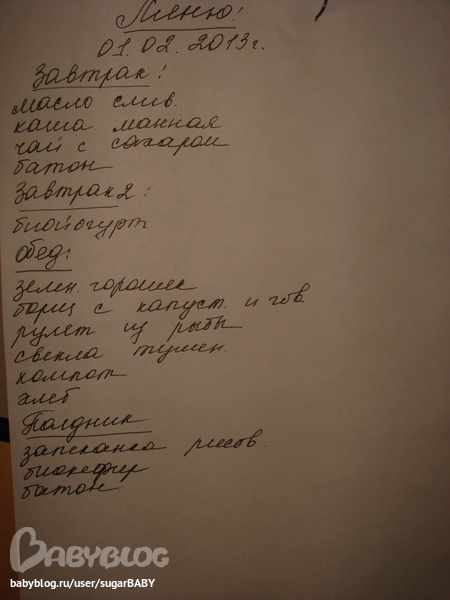 Меню!
01.02.2013г.
Завтрак!
масло слив.
каша манная
чай с сахаром
батон
Завтрак 2:
биойогурт
обед:
зелен. горошек
борщ с капуст. и гов.
рулет из рыбы
свекла тушен.
компот
хлеб
Полдник
запеканка рисов.
биокефир
батон
BABYBLOG
babyblog.ru/user/sugarBABY